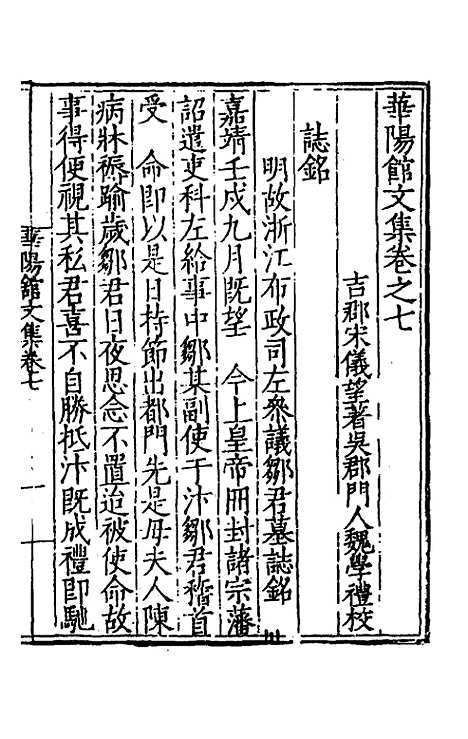 華陽館文集卷之七
吉郡宋儀望著吳郡門人魏學禮校
誌銘
明故浙江布政司左叅議鄒君墓誌銘
嘉靖壬戍九月既望　今上皇帝冊封諸宗藩
詔遣吏科左給事中鄒某副使于汴鄒君稽首
受　命即以是日持節出都門先是母夫人陳
病牀褥踰歲鄒君日夜思念不置迨被使命故
事得便視其私君喜不自勝抵汴既成禮即馳
華陽館文集卷七　一